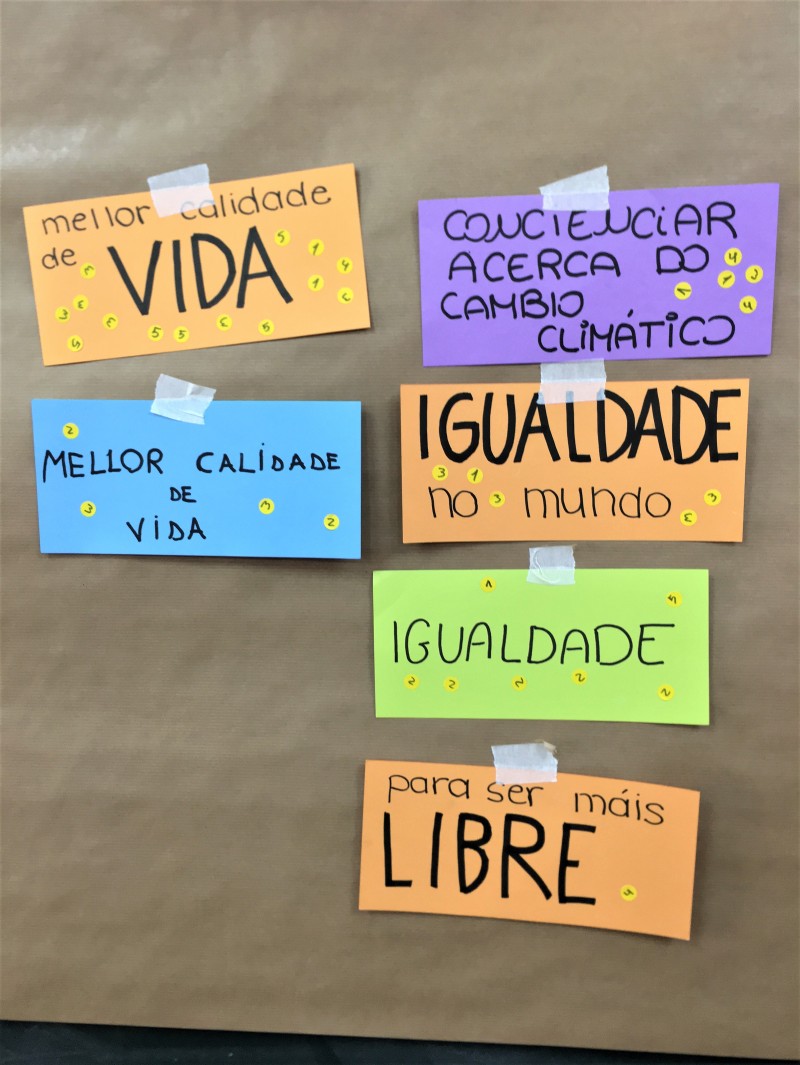 mellor calidade
de VIDA
CONCIENCIAR
ACERCA DO
CAMBIO
CLIMÁTICO
MELLOR CALIDADE
DE
VIDA
IGUALDADE
no mundo
IGUALDADE
para ser máis
LIBRE